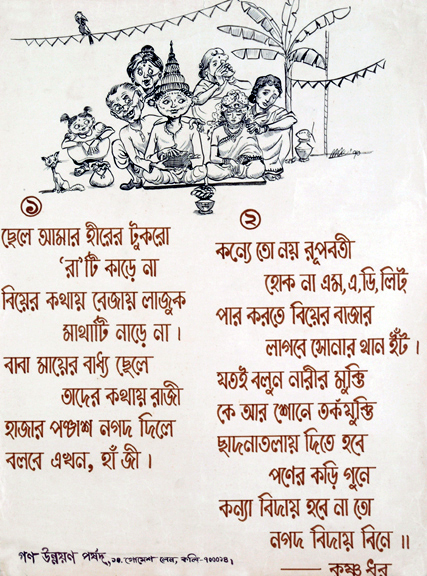 ১
ছেলে আমার হীরের টুকরো
'রা'টি কাড়ে না
বিয়ের কথায় বেজায় লাজুক
মাথাটি নাড়ে না।
বাবা মায়ের বাধ্য ছেলে
তাদের কথায় রাজী
হাজার পঞ্চাশ নগদ দিলে
বলবে এখন, হাঁ জী।
২
কন্যে তো নয় রূপবতী
হোক না এম,এ,ডি,লিট্
পার করতে বিয়ের বাজার
লাগবে সোনার থান ইঁট।
যতই বলুন নারীর মুক্তি
কে আর শোনে তর্কযুক্তি
ছাদনাতলায় দিতে হবে
পণের কড়ি গুনে
কন্যা বিদায় হবে না তো
নগদ বিদায় বিনে॥
—— কৃষ্ণ ধর
গণ উন্নয়ণ পর্ষদ, ১০, গোমেশ লেন, কলি-৭০০০১৪।